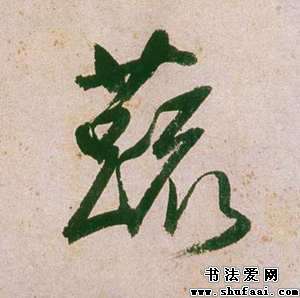 蔬
书法爱网
www.shufaai.com